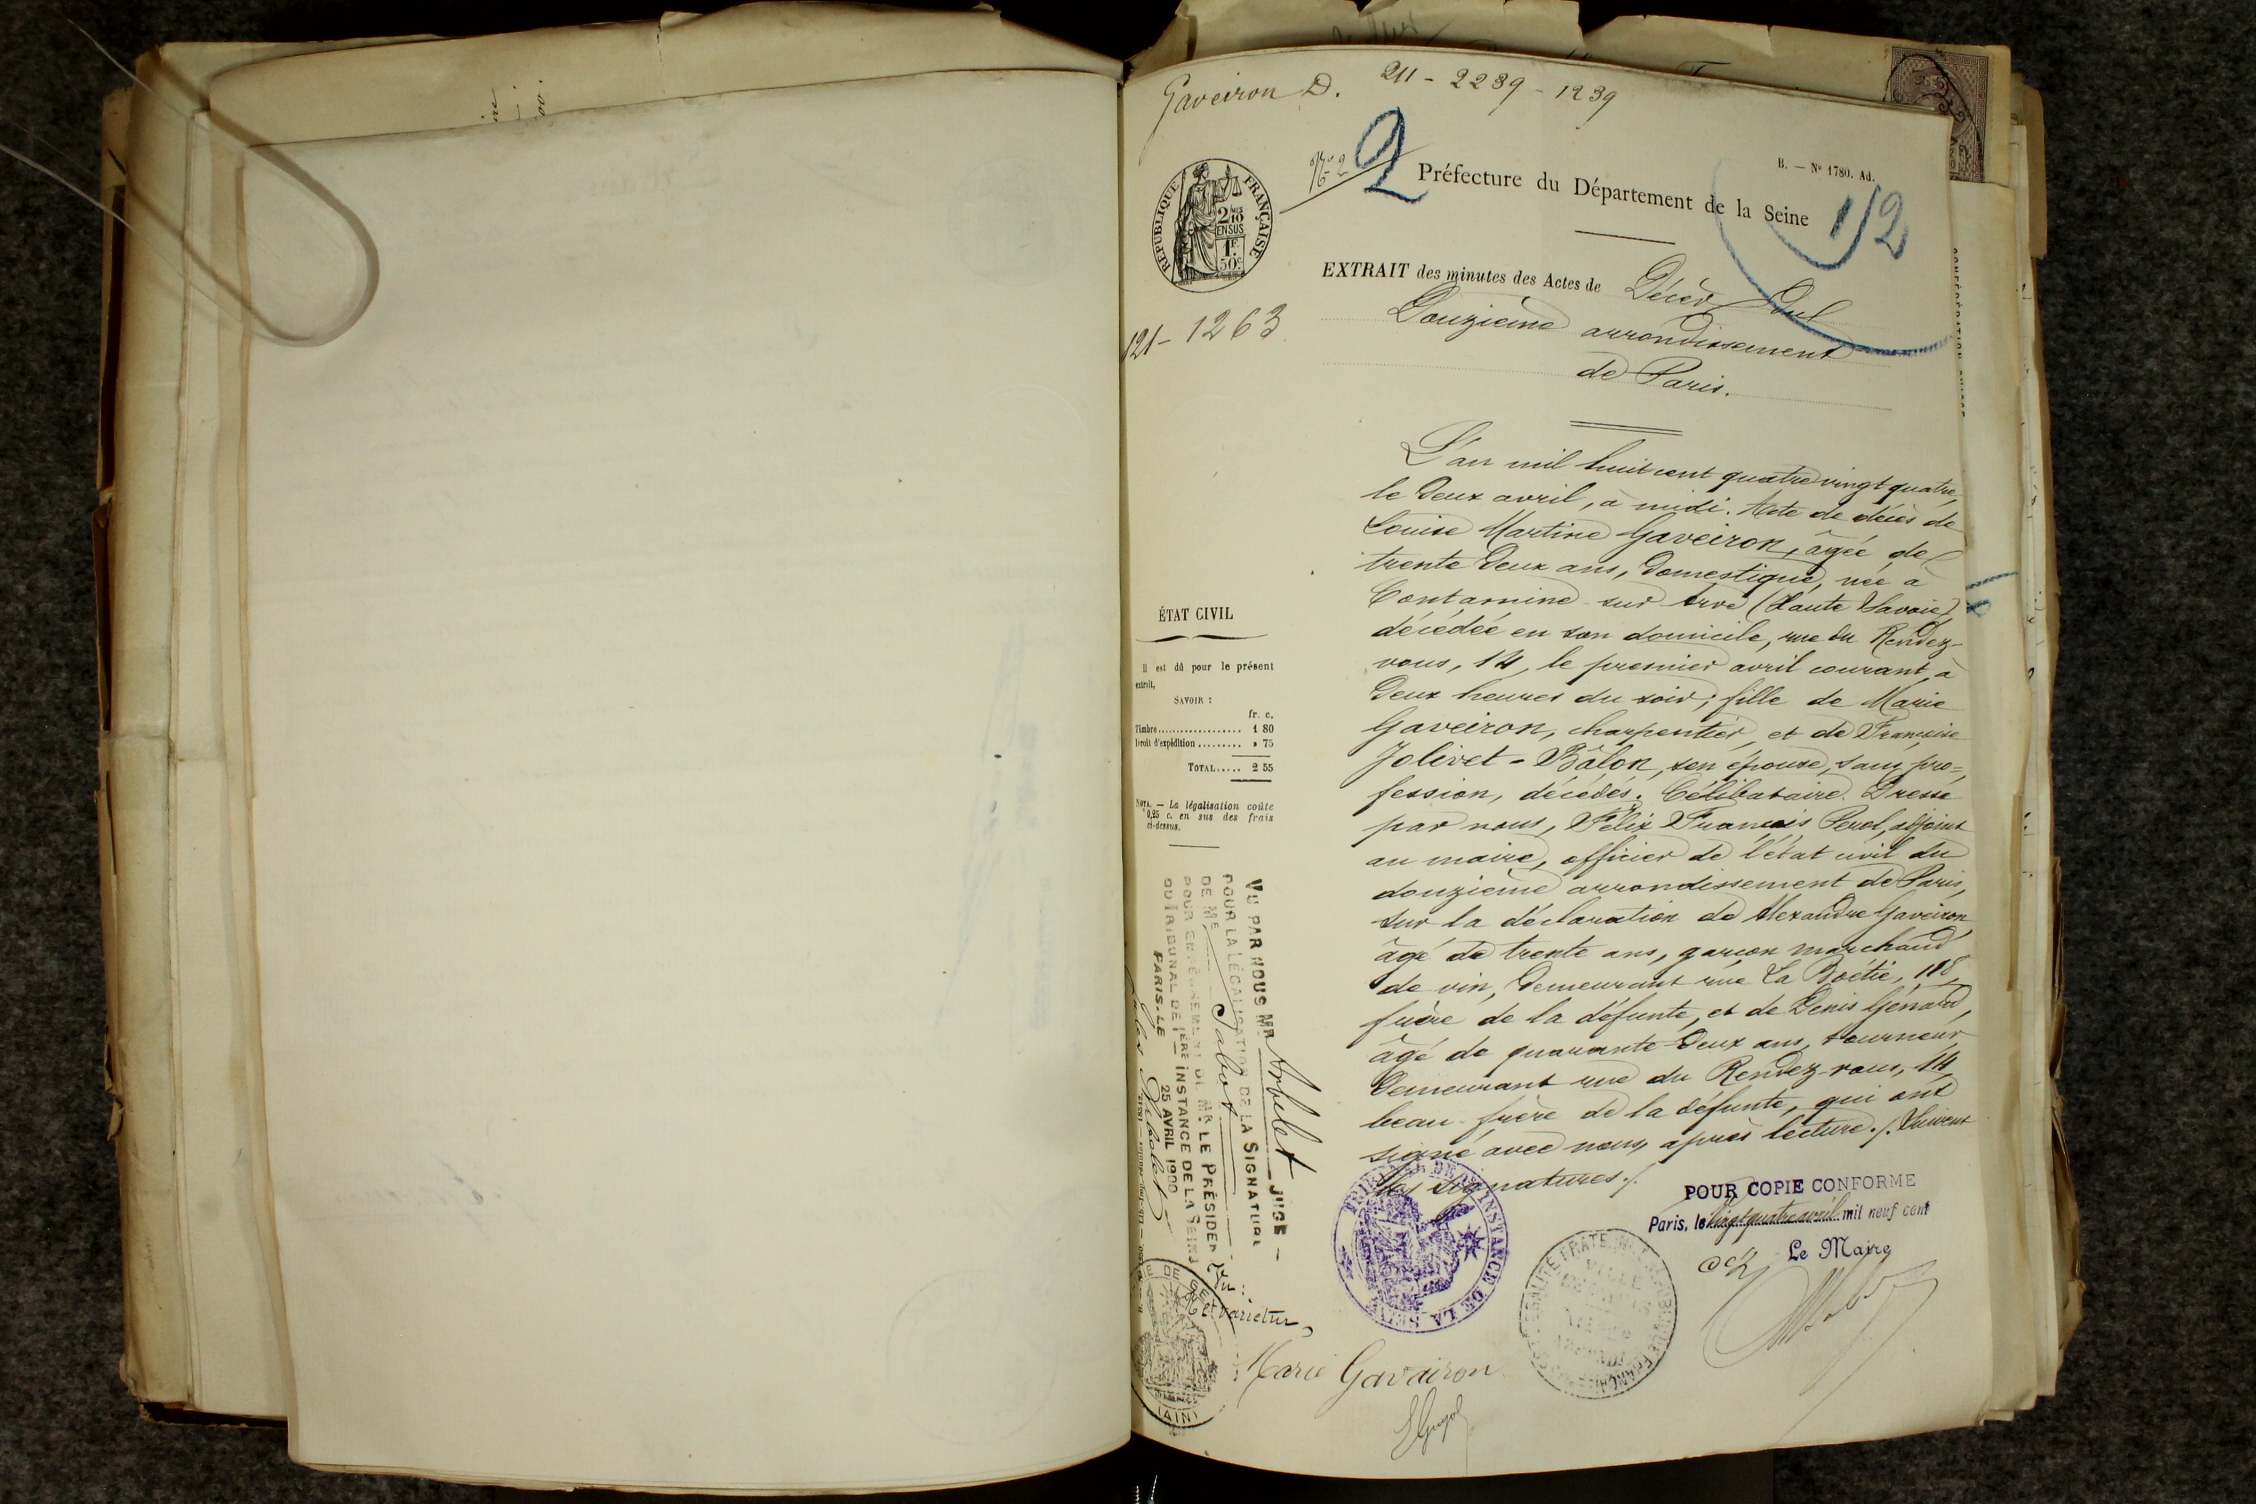 Gaveiron D. 211 - 2239 - 1239
No 2
2
B. — No 1780. Ad.
Préfecture du Département de la Seine
1/2
RÉPUBLIQUE FRANÇAISE
2/10
EN SUS
1F.
50c
121 - 1263
EXTRAIT des minutes des Actes de Décès du
Douzième arrondissement
de Paris.
L'an mil huit cent quatre vingt quatre,
le deux avril, à midi. Acte de décès de
Louise Martine Gaveiron, âgée de
trente deux ans, domestique, née à
Contamine-sur Arve (Haute Savoie)
décédée en son domicile, rue du Rendez-
vous, 14, le premier avril courant, à
deux heures du soir; fille de Marie
Gaveiron, charpentier, et de Françoise
Jolivet-Bâlon, son épouse, sans pro=
fession, décédés. Célibataire. Dressé
par nous, Félix François Perol, adjoint
au maire, officier de l'état civil du
douzième arrondissement de Paris,
sur la déclaration de Alexandre Gaveiron
âgé de trente ans, garçon marchand
de vin, demeurant rue La Boétie, 118,
frère de la défunte, et de Denis Génard,
âgé de quarante-deux ans, tourneur
demeurant rue du Rendez-vous, 14
beau-frère de la défunte, qui ont
signé avec nous, après lecture ./. Suivent
les signatures ./.
ÉTAT CIVIL
Il est dû pour le présent
extrait,
SAVOIR :
fr. c.
Timbre.................. 1 80
Droit d'expédition......... » 75
TOTAL..... 2 55
NOTA. — La légalisation coûte
0,25 c. en sus des frais
ci-dessus.
VU PAR NOUS MR Arbelet JUGE
POUR LA LÉGALISATION DE LA SIGNATURE
DE ME Jabot
POUR EMPÊCHEMENT DE MR LE PRÉSIDENT
DU TRIBUNAL DE 1ÈRE INSTANCE DE LA SEINE
PARIS, LE 25 AVRIL 1900
TRIBUNAL DE 1ère INSTANCE DE LA SEINE
POUR COPIE CONFORME
Paris, le vingt quatre avril mil neuf cent
Le Maire
Vu:
Ne varietur,
(AIN)
Marie Gavairon